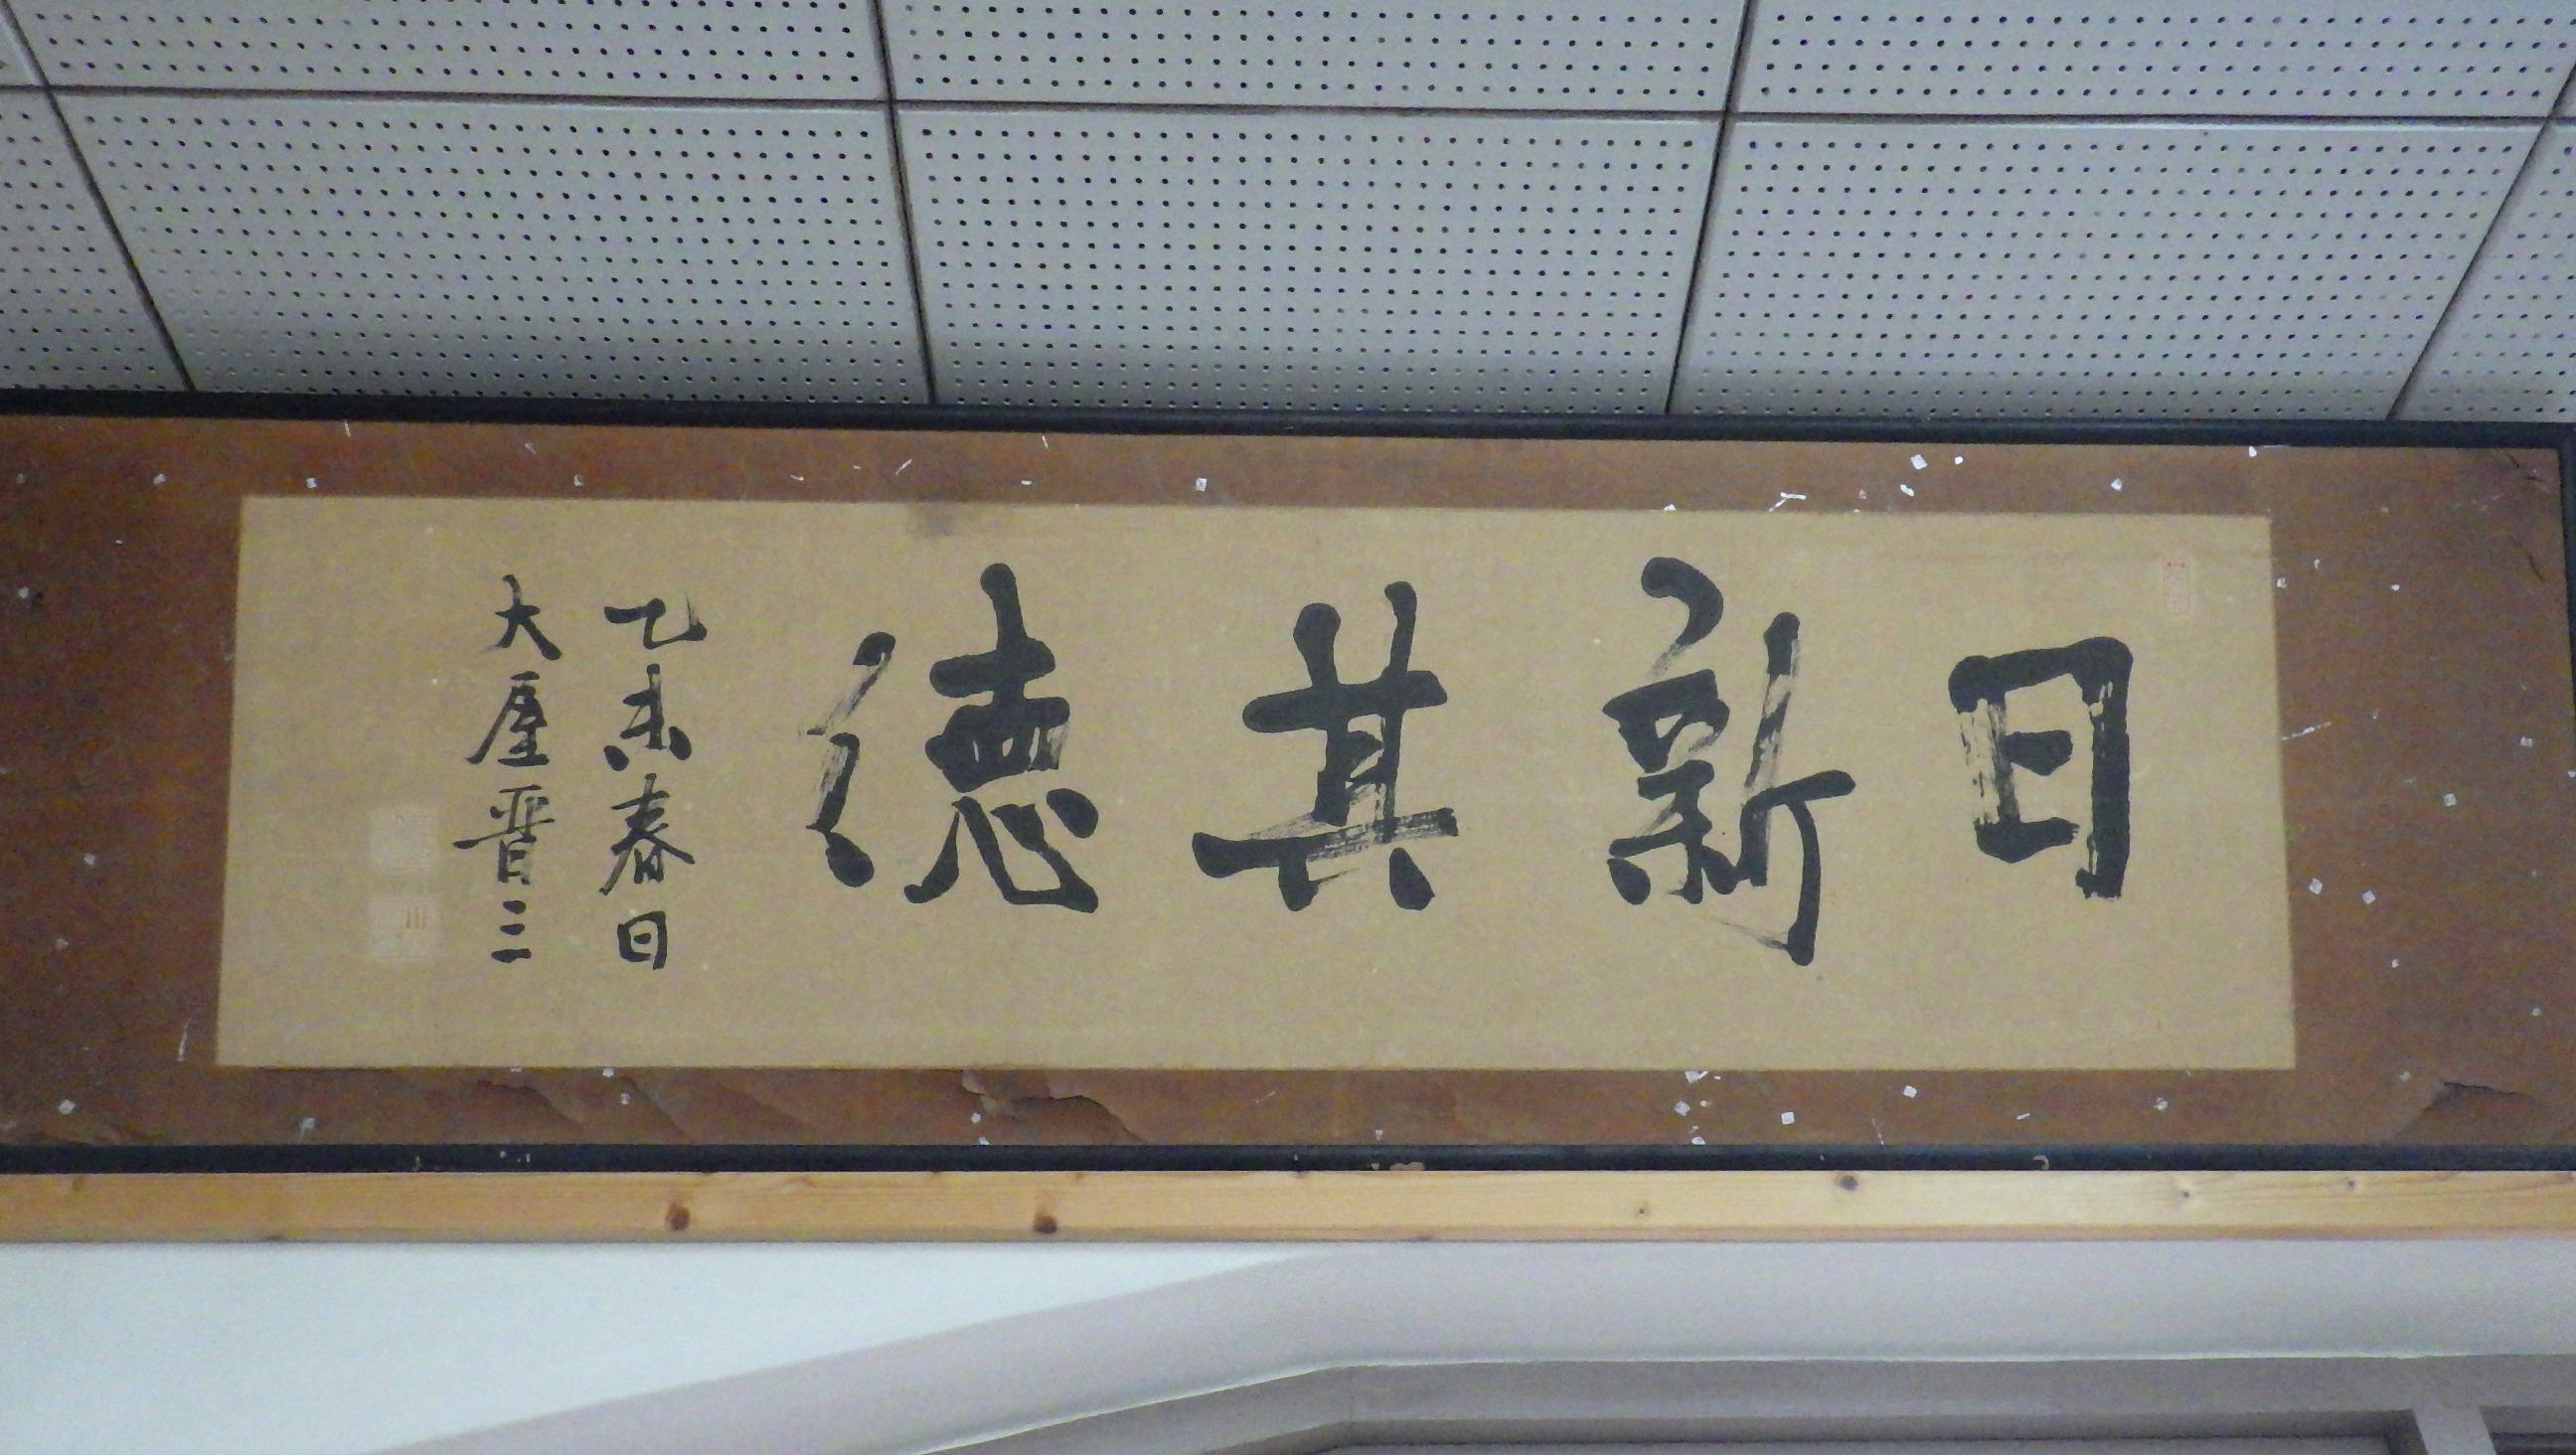 日新其徳
乙未春日
大屋晋三